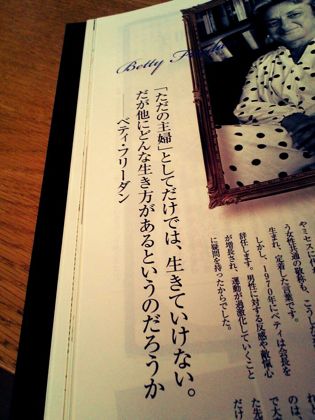 Betty
「ただの主婦」としてだけでは、生きていけない。
だが他にどんな生き方があるというのだろうか
――ベティ・フリーダン
やミセスに代わ
う女性共通の敬称も、こうした
生まれ、定着した言葉です。
しかし、1970年にベティは会長を
辞任します。男性に対する反感や敵愾心
が増長され、運動が過激化していくこと
に疑問を持ったからでした。